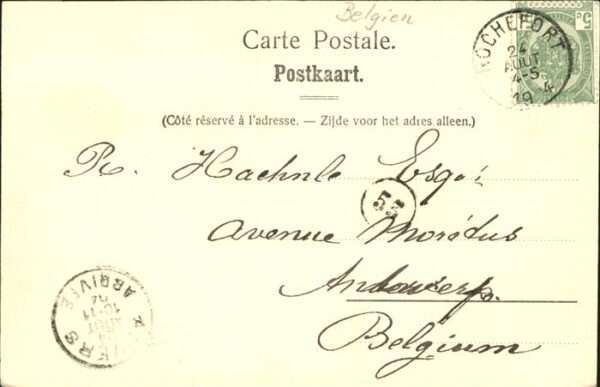 Belgien
Carte Postale.
Postkaart.
(Côté réservé à l'adresse. — Zijde voor het adres alleen.)
ROCHEFORT
24
AOUT
4-5
19 4
5c
R. Haehnle Esqr
55
Avenue Morétus
Antwerp.
Belgium
ARRIVEE
10-11